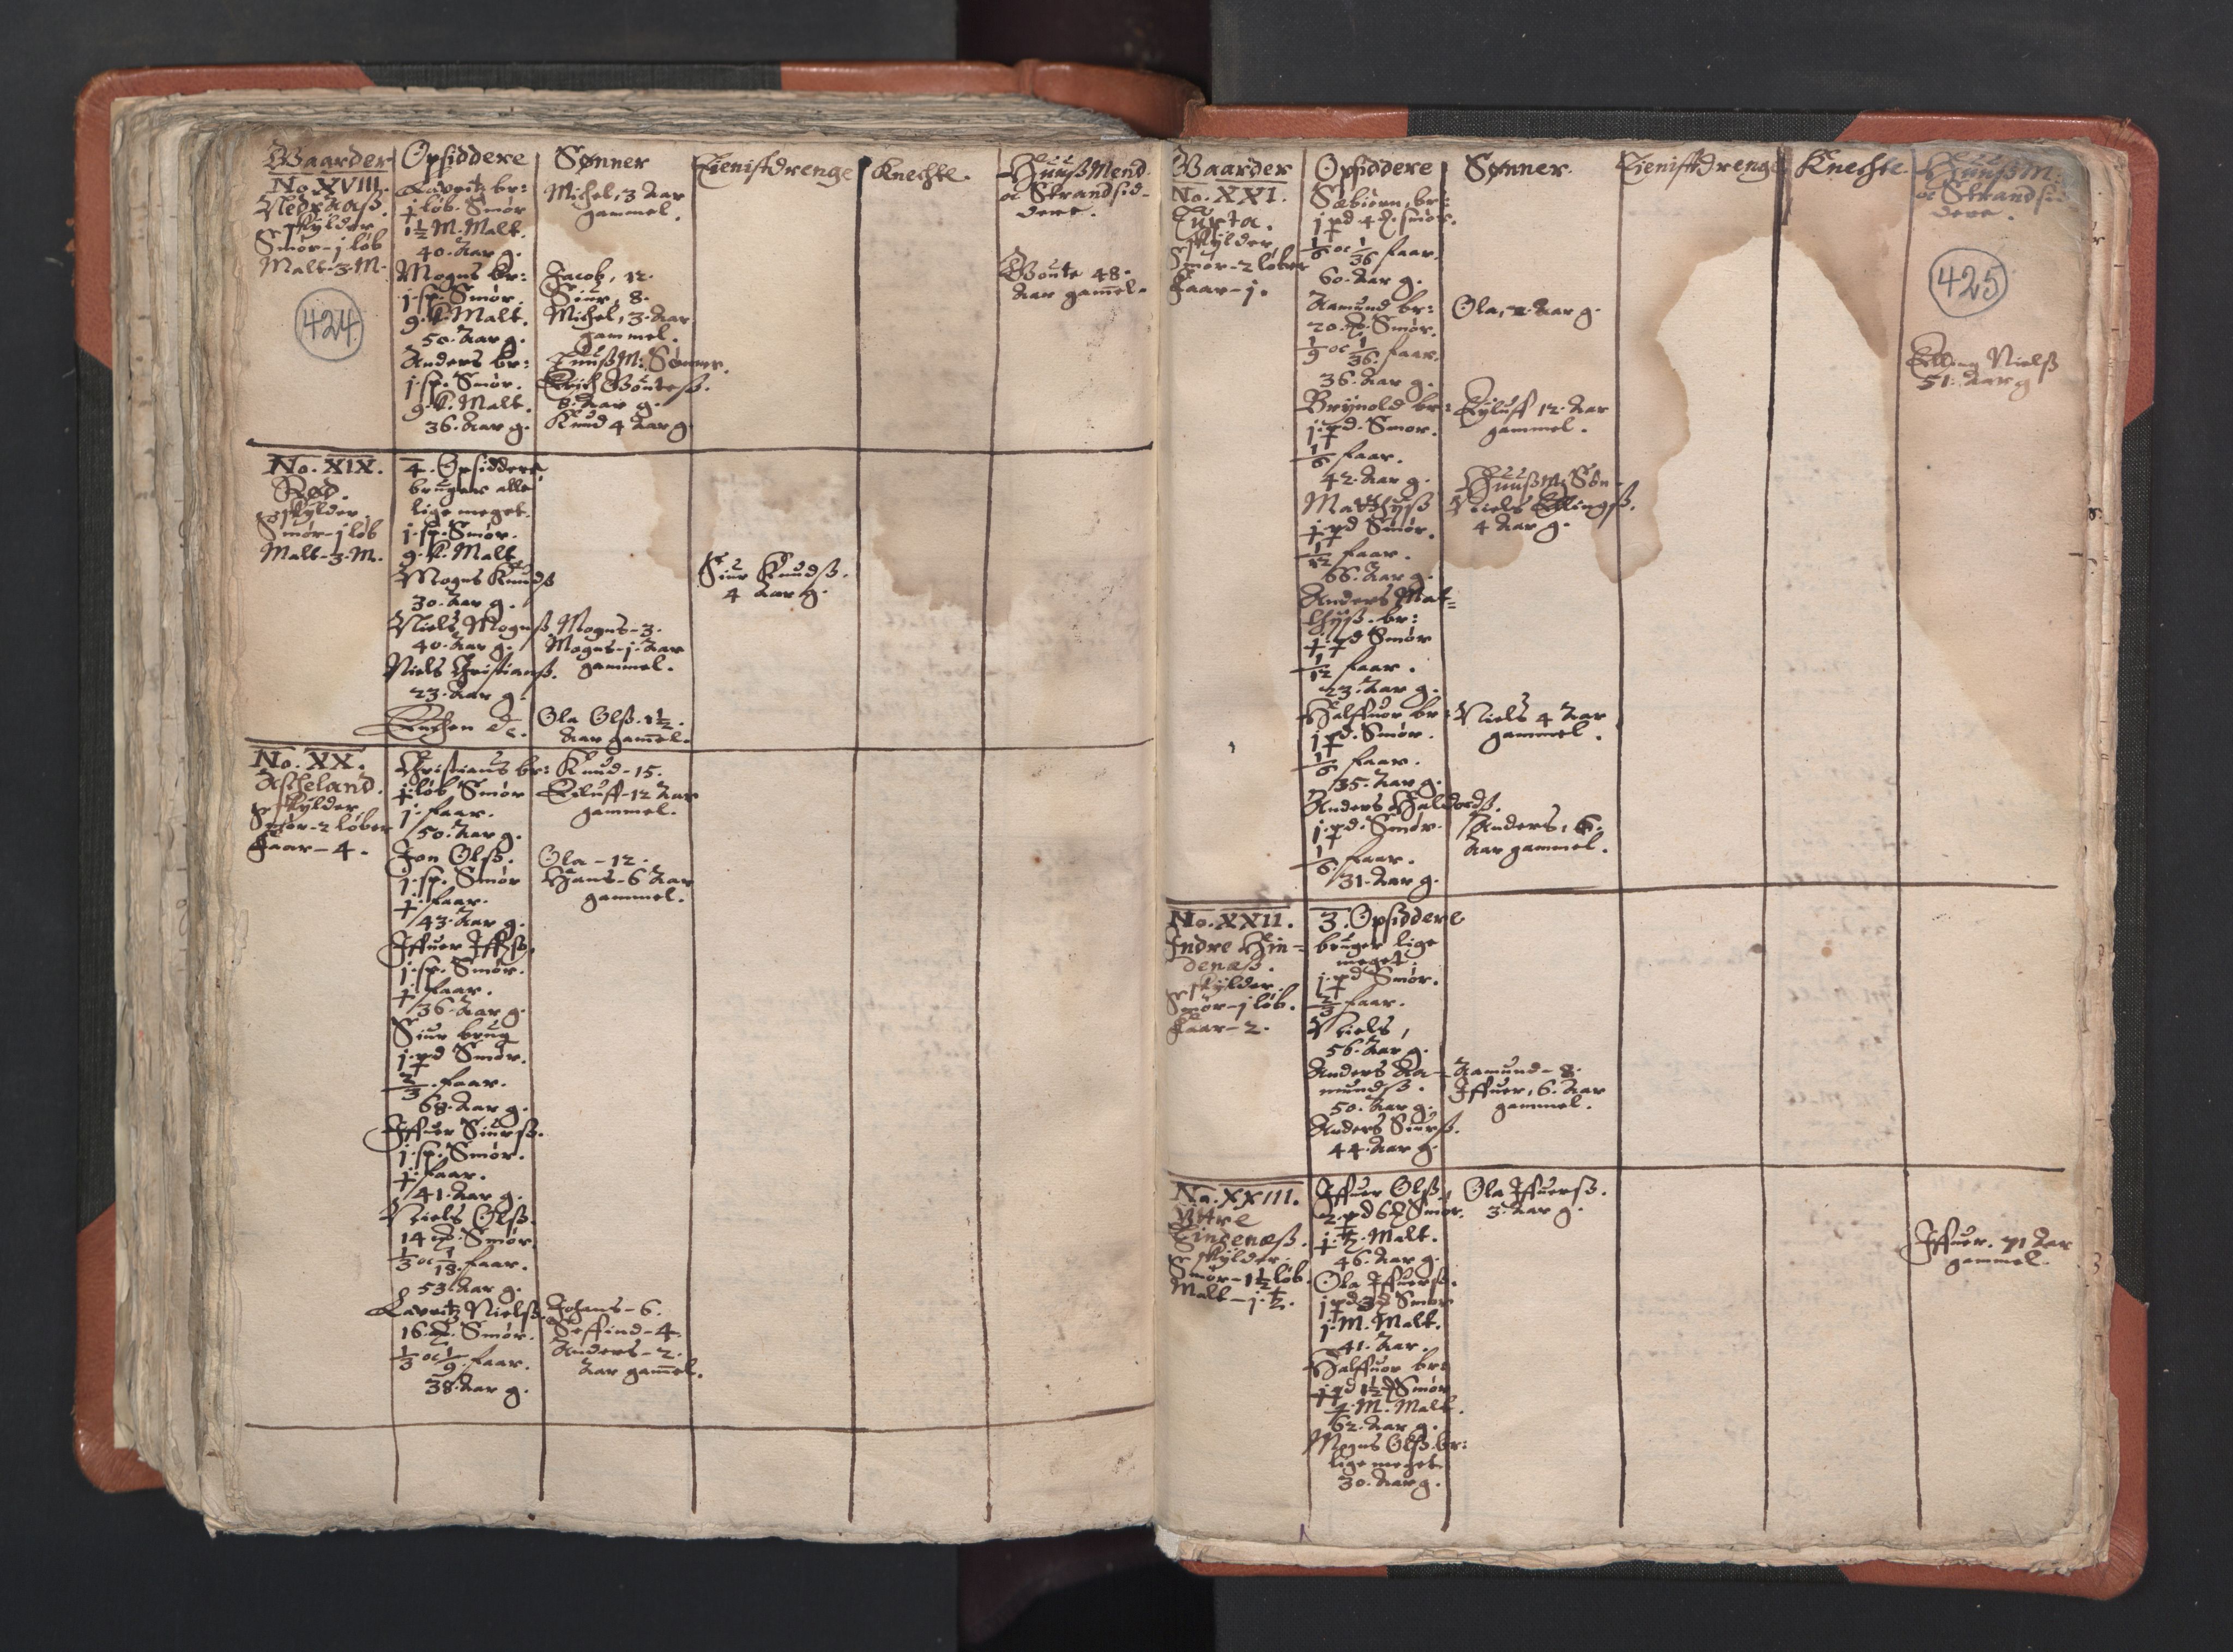 Gaarder
No. XVIII.
Nedraaß.
skylder
Smør-j løb
Malt-3-M.
424
Opsiddere
Lavritz br:
½ løb. Smør
1½ M. Malt.
40. Aar g.
Mogns br:
j. sp. Smør.
9. k. Malt.
50. Aar g.
Anders br:
j. sp. Smør.
9. k. Malt.
36. Aar g.
Sønner
Michel, 3 Aar
gammel.
Jacob, 12.
Siur, 8.
Michel, 3. Aar
gammel.
Huuß M: Sønner.
Erich Goutesß.
8. Aar g.
Knud 4 Aar g.
Tienistdrenge
Knechte.
HuußMend
oc Strandsid-
dere.
Goute 48.
Aar gamel.
No. XIX.
Rød.
skylder
Smør-j løb
Malt-3-M.
4. Opsiddere
bruger alle
lige meget.
j. sp. Smør.
9. k. Malt
Mogns Knudß
30. Aar g.
Niels Mognsß
40. Aar g.
Niels Christiansß.
23. Aar g.
Enchen
Mogns-3.
Mogns-j. Aar
gammel.
Ola Olß. 1½.
Aar gamel.
Siur Knudß.
4 Aar g.
No. XX.
Ascheland.
skylder
Smør-2 løber
Faar-4.
Christians br:
½ løb Smør
j. faar.
50. Aar g.
Jon Olß.
j. sp. Smør
½ faar.
43. Aar g.
Iffuer Iffß.
j. sp. Smør.
½ faar.
36. Aar g.
Siur brug
j. pd Smør.
⅔ faar.
68. Aar g.
Iffuer Siursß.
j. sp. Smør.
½ faar.
41. Aar g.
Niels Olß.
14 Smør
⅓ oc 1/18. faar.
53. Aar g.
Lavritz Nielsß.
16. Smør.
⅓ oc 1/9. faar.
38. Aar g.
Knud-15.
Eiluff-12 Aar
gammel.
Ola-12.
Hans-6 Aar
gammel.
Johans-6.
Seffind-4.
Anders-2.
Aar gamel.
Gaarder
No. XXI.
Turta.
skylder
Smør-2 løber
Faar-j.
Opsiddere
Sæbiørn, br:
j pd 4 smør.
1/6 oc 1/36 faar.
60. Aar g.
Aamund br:
20. Smør.
1/9 oc 1/36. faar.
36. Aar g.
Brynold br:
j. pd. Smør.
1/6 faar.
42. Aar g.
Matthysß
½ pd Smør.
1/12 faar.
66. Aar g.
Anders Mat=
thysß. br:
½ pd Smør
1/12 faar.
23. Aar g.
Halffuor br:
j pd. Smør.
1/6 faar.
35. Aar g.
Anders Haldordß.
j. pd. Smør.
1/6 faar.
31. Aar g.
Sønner.
Ola, 2. Aar g.
Eyluff 12. Aar
gammel.
Huußm: Søn
Niels Ellingß.
4 Aar g.
Niels 4 Aar
gammel.
Anders, 6.
Aar gammel.
Tienistdrenge
Knechte
Huuß M:
oc Strandsid-
dere.
425
Elling Nielß
51. Aar g
No. XXII.
Indre Hin=
denæß.
skylder.
Smør-j løb.
Faar-2.
3. Opsiddere
bruger lige
meget.
j. pd Smør.
⅔ faar.
Niels,
56. Aar g.
Anders Aa-
mundsß.
50. Aar g.
Anders Siurß.
44. Aar g.
Aamund-8.
Iffuer, 6. Aar
gammel.
No. XXIII.
Yttre
Hindenæß.
skylder.
Smør-1½ løb.
Malt-j.
Iffuer Olß,
2. pd 6 Smør.
Malt.
46. Aar g.
Ola Iffuersß.
j pd 3 Smør
j. M. Malt.
41. Aar.
Halffuor br:
½ pd 1½ Smør
½. M. Malt.
62. Aar g.
Mogns Olß. br:
lige meget.
30. Aar g.
Ola Iffuersß.
3. Aar g.
Iffuer. 71 Aar
gammel.